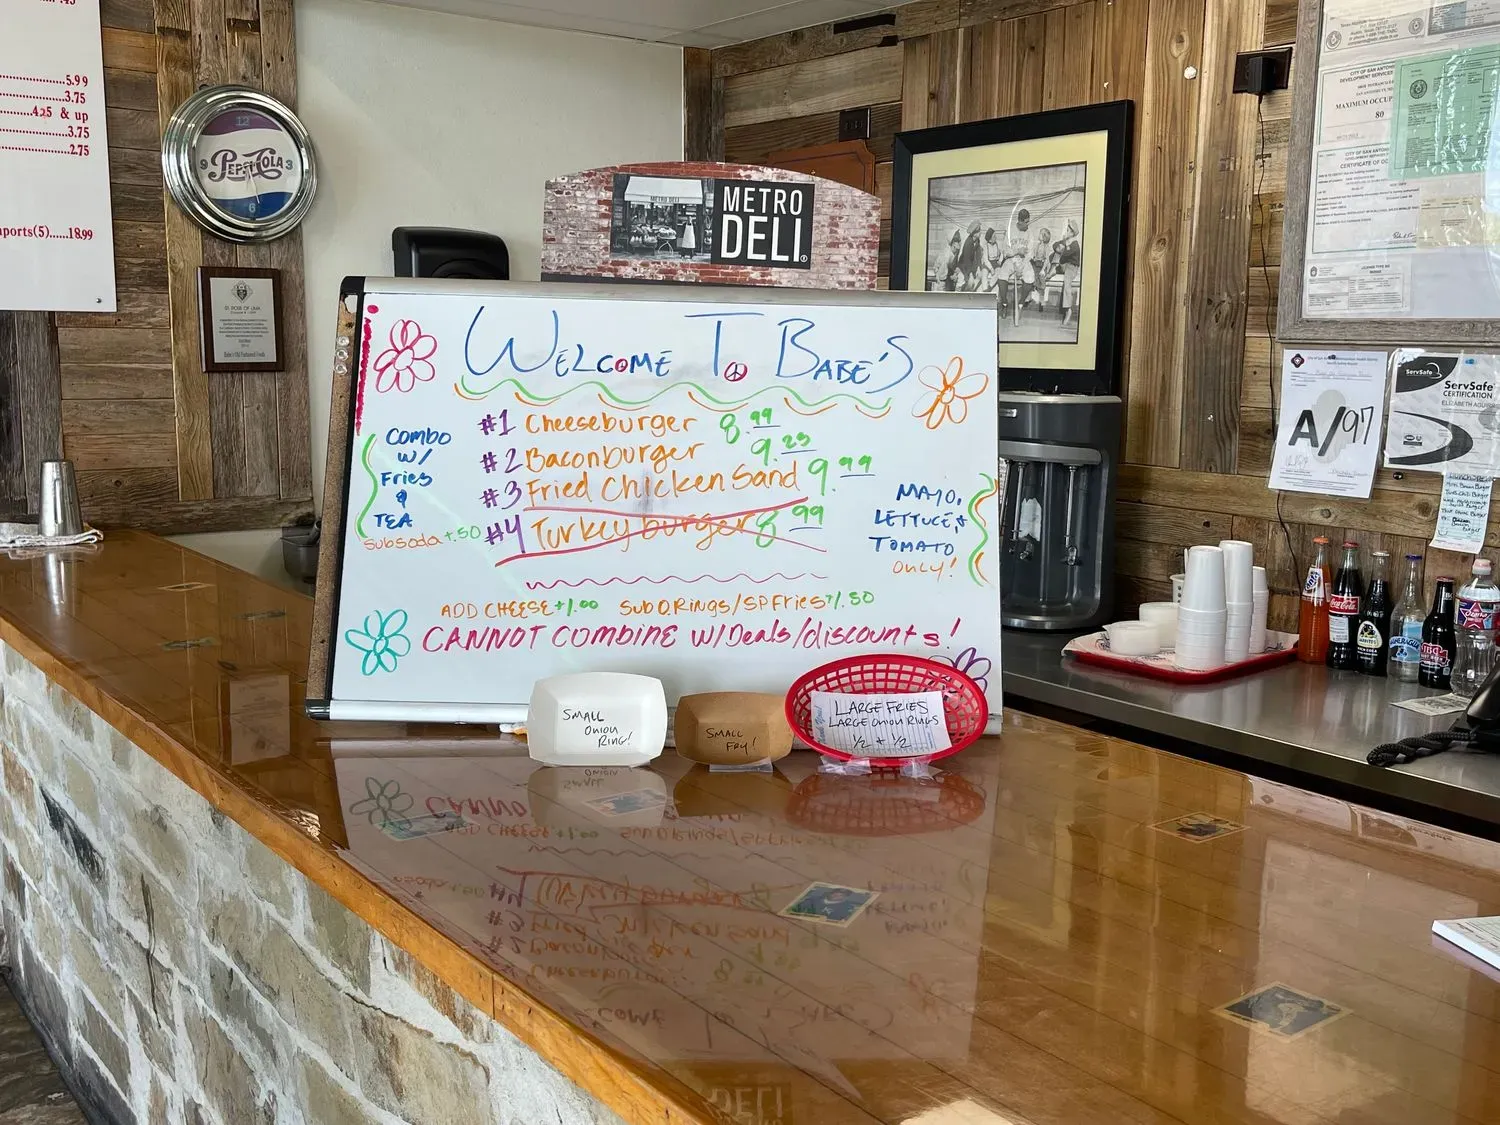 5.99
3.75
4.25 & up
3.75
2.75
ports(5)......18.99
12
9 PEPSI COLA 3
6
METRO
DELI
WELCOME TO BABE'S
#1 Cheeseburger 8.99
#2 Baconburger 9.25
#3 Fried Chicken Sand 9.99
#4 Turkey burger 8.99
COMBO
W/
FRIES
&
TEA
Sub soda +.50
MAYO,
LETTUCE, &
TOMATO
ONLY!
ADD CHEESE +1.00 SUB O.RINGS/SP FRIES +1.50
CANNOT COMBINE W/ Deals/discounts!
SMALL
ONION
RING!
SMALL
FRY!
LARGE FRIES
LARGE ONION RINGS
1/2 + 1/2
Austin, Texas 78711-3127
CITY OF SAN ANTONIO
DEVELOPMENT SERVICES
MAXIMUM OCCUP
80
CITY OF SAN ANTONIO
CERTIFICATE OF OC
A/97
ServSafe
ServSafe
CERTIFICATION
ELIZABETH AGUIR
Coca-Cola